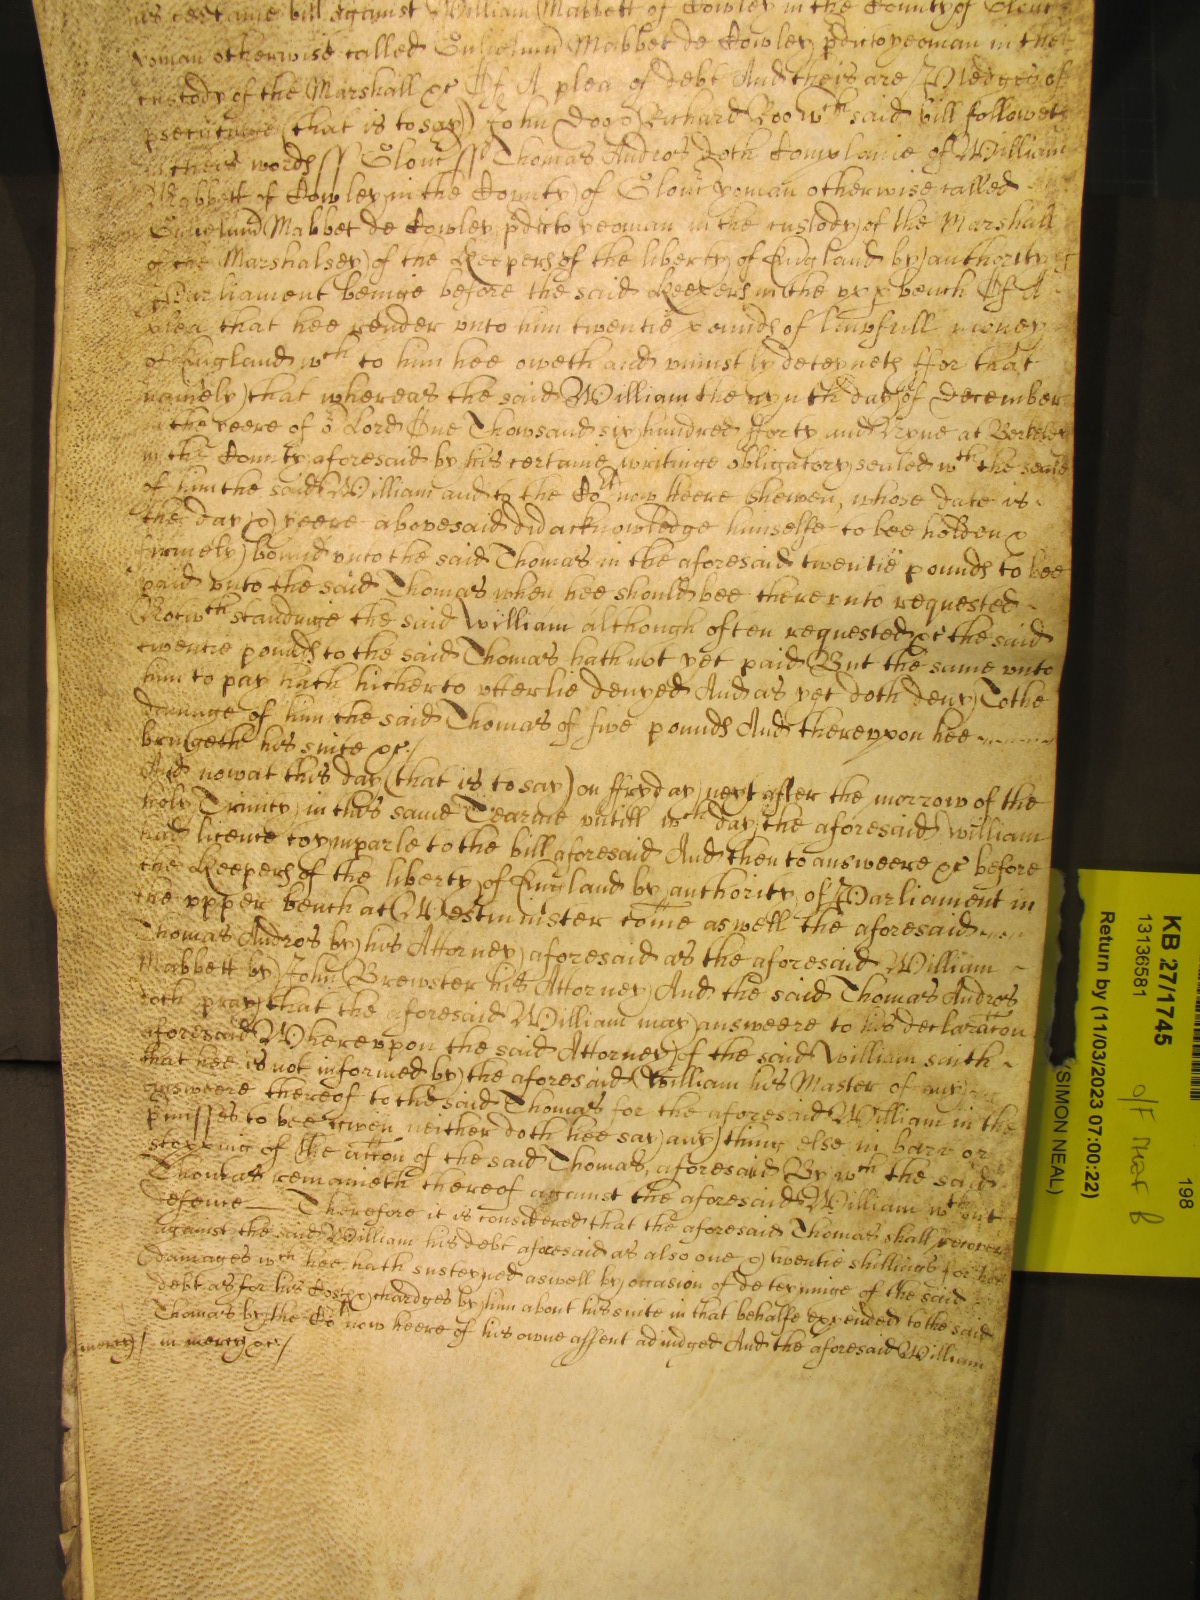 his certaine bill against William Mabbett of Cowley in the County of Glouc
yoman otherwise called Gulielmu Mabbet de Cowley pdicto yeoman in the
custody of the Marshall &c Of A plea of debt And theis are Pledges of
psecutinge (that is to say) John Doo & Richard Roo wch said bill followeth
in theis words ss Glouc ss Thomas Andros doth Complaine of William
Mabbett of Cowley in the County of Glouc yoman otherwise called
Gulielmu Mabbet de Cowley pdicto yeoman in the custody of the Marshall
of the Marshalsey of the Keepers of the liberty of England by authority of
Parliament beinge before the said Keepers in the upp bench Of A
plea that hee render unto him twentie pounds of lawfull money
of England wch to him hee oweth and uniustly deteyneth ffor that
namely that whereas the said William the day of December
in the yeere of or Lord One Thowsand six hundred fforty and Nyne at
in the County aforesaid by his certaine writinge obligatory sealed wth the seale
of him the said William and to the Cort now heere shewen, whose date is
the day & yeere abovesaid did acknowledge himselfe to bee holden &
firmely bound unto the said Thomas in the aforesaid twentie pounds to bee
paid unto the said Thomas when hee should bee thereunto requested
Notwthstandinge the said William although often requested &c the said
twentie pounds to the said Thomas hath not yet paid But the same unto
him to pay hath hitherto utterlie denyed And as yet doth deny To the
damage of him the said Thomas of five pounds And thereupon hee
bringeth his suite &c/
And now at this day (that is to say) on ffryday next after the morrow of the
holy Trinity in this same Tearme untill wch day the aforesaid William
had licence to ymparle to the bill aforesaid And then to answeere &c before
the Keepers of the liberty of England by authority of Parliament in
the upper bench at Westminster come aswell the aforesaid
Thomas Andros by his Attorney aforesaid as the aforesaid William
Mabbett by John Brewster his Attorney And the said Thomas Andros
doth pray that the aforesaid William may answeere to his declaration
aforesaid Whereupon the said Attorney of the said William saith
that hee is not informed by the aforesaid William his Master of any
answeere thereof to the said Thomas for the aforesaid William in the
pmisses to bee given neither doth hee say any thing else in barr or
stopping of the accon of the said Thomas, aforesaid By wch the said
Thomas remaineth thereof against the aforesaid William wthout
defence — Therefore it is considered that the aforesaid Thomas shall recover
against the said William his debt aforesaid as also one & twentie shillings for his
damages wch hee hath susteyned aswell by occasion of deteyninge of the said
debt as for his Costs & chardges by him about his suite in that behalfe expended to the said
Thomas by the Cort now heere of his owne assent adiudged And the aforesaid William
mercy/ in mercy &c/
KB 27/1745
13136581
Return by (11/03/2023 07:00:22)
(SIMON NEAL)
198